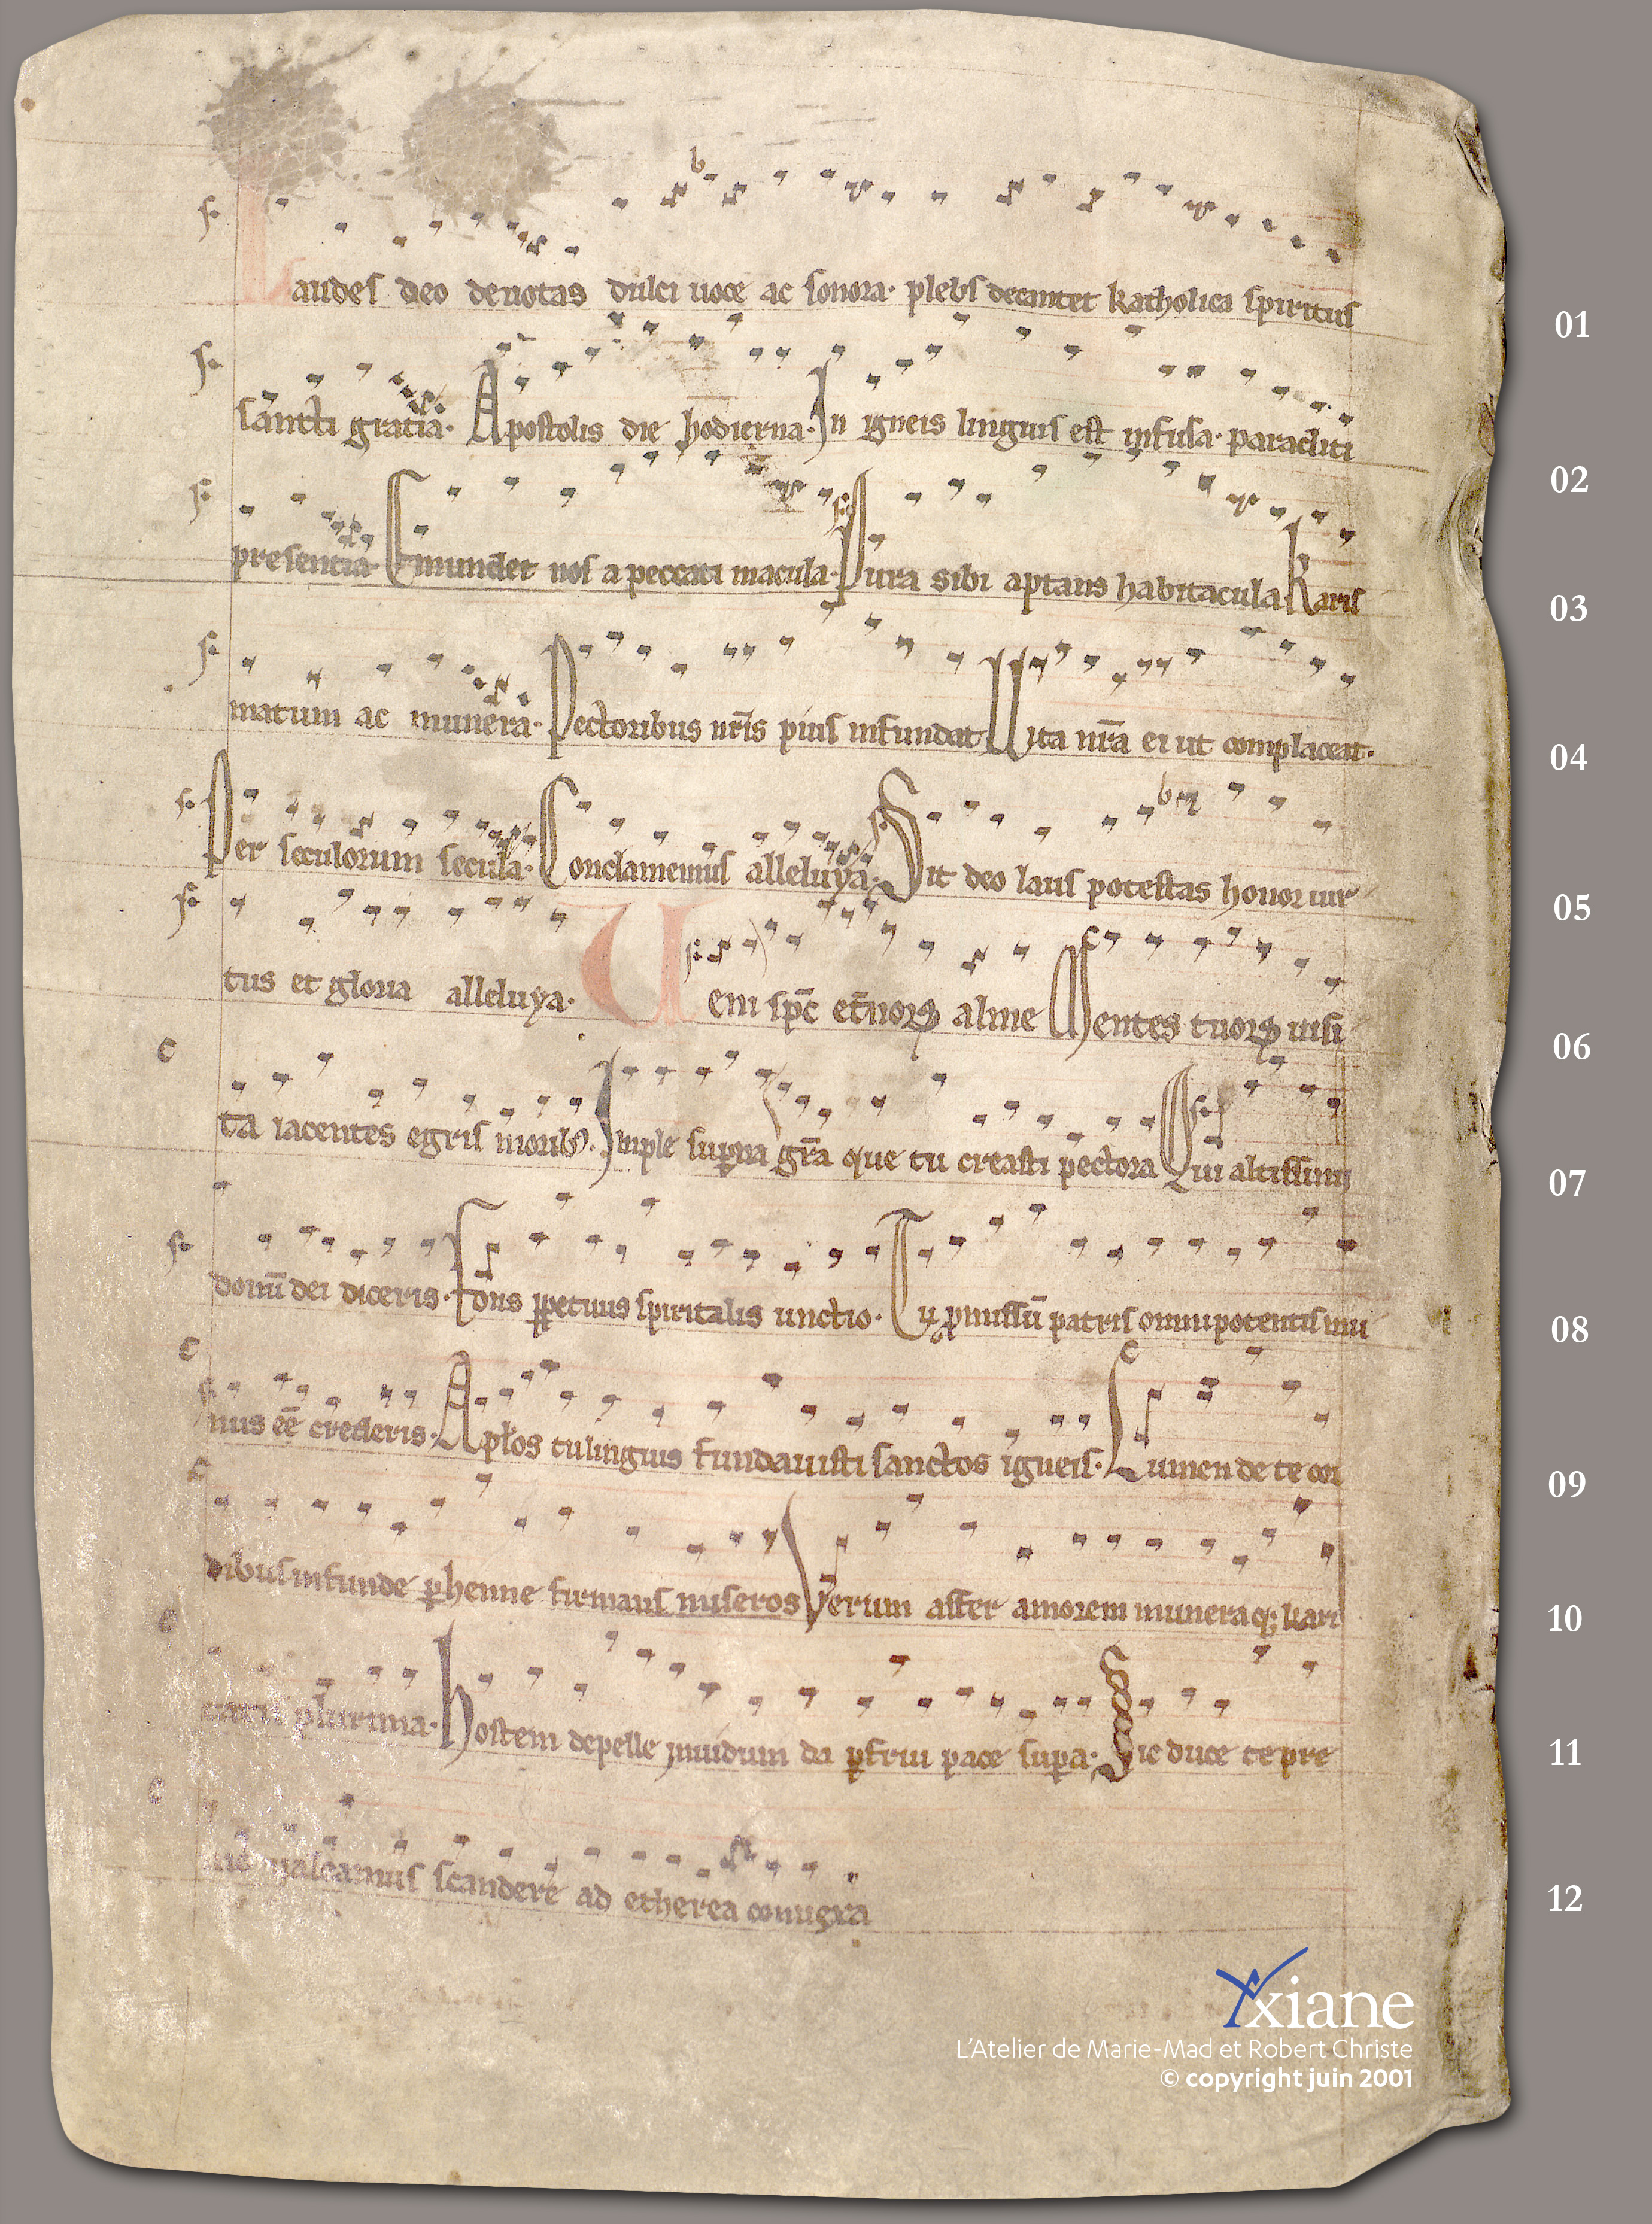 Laudes deo deuotas dulci uoce ac sonora· plebs decantet katholica spiritus
01
sancti gratia· Apostolis die hodierna· In igneis linguis est infusa· paracliti
02
presentia· Emundet nos a peccati macula· Pura sibi aptans habitacula Karis
03
matum ac munera· Pectoribus nr̄is pius infundat Vita nr̄a ei ut complaceat·
04
Per seculorum secula· Conclamemus alleluya· Sit deo laus potestas honor uir
05
tus et gloria alleluya· Veni sp̄c et̄noꝝ alme Mentes tuoꝝ uisi
06
ta iacentes egris morib9· Imple suꝑna gr̄a que tu creasti pectora Qui altissimi
07
donū dei diceris· Fons ꝑpetuus spiritalis unctio· Tu ꝓmissū patris omnipotentis mu
08
nus eē crederis· Apl̄os tu linguis fundauisti sanctos igneis· Lumen de te cor
09
dibus infunde ꝑhenne firmans miseros Verum affer amorem muneraq; kari
10
tatis plurima· Hostem depelle inuidum da ꝑfrui pace suꝑa· Sic duce te pre
11
uio ualeamus scandere ad etherea conuexa
12
Yxiane
L'Atelier de Marie-Mad et Robert Christe
© copyright juin 2001